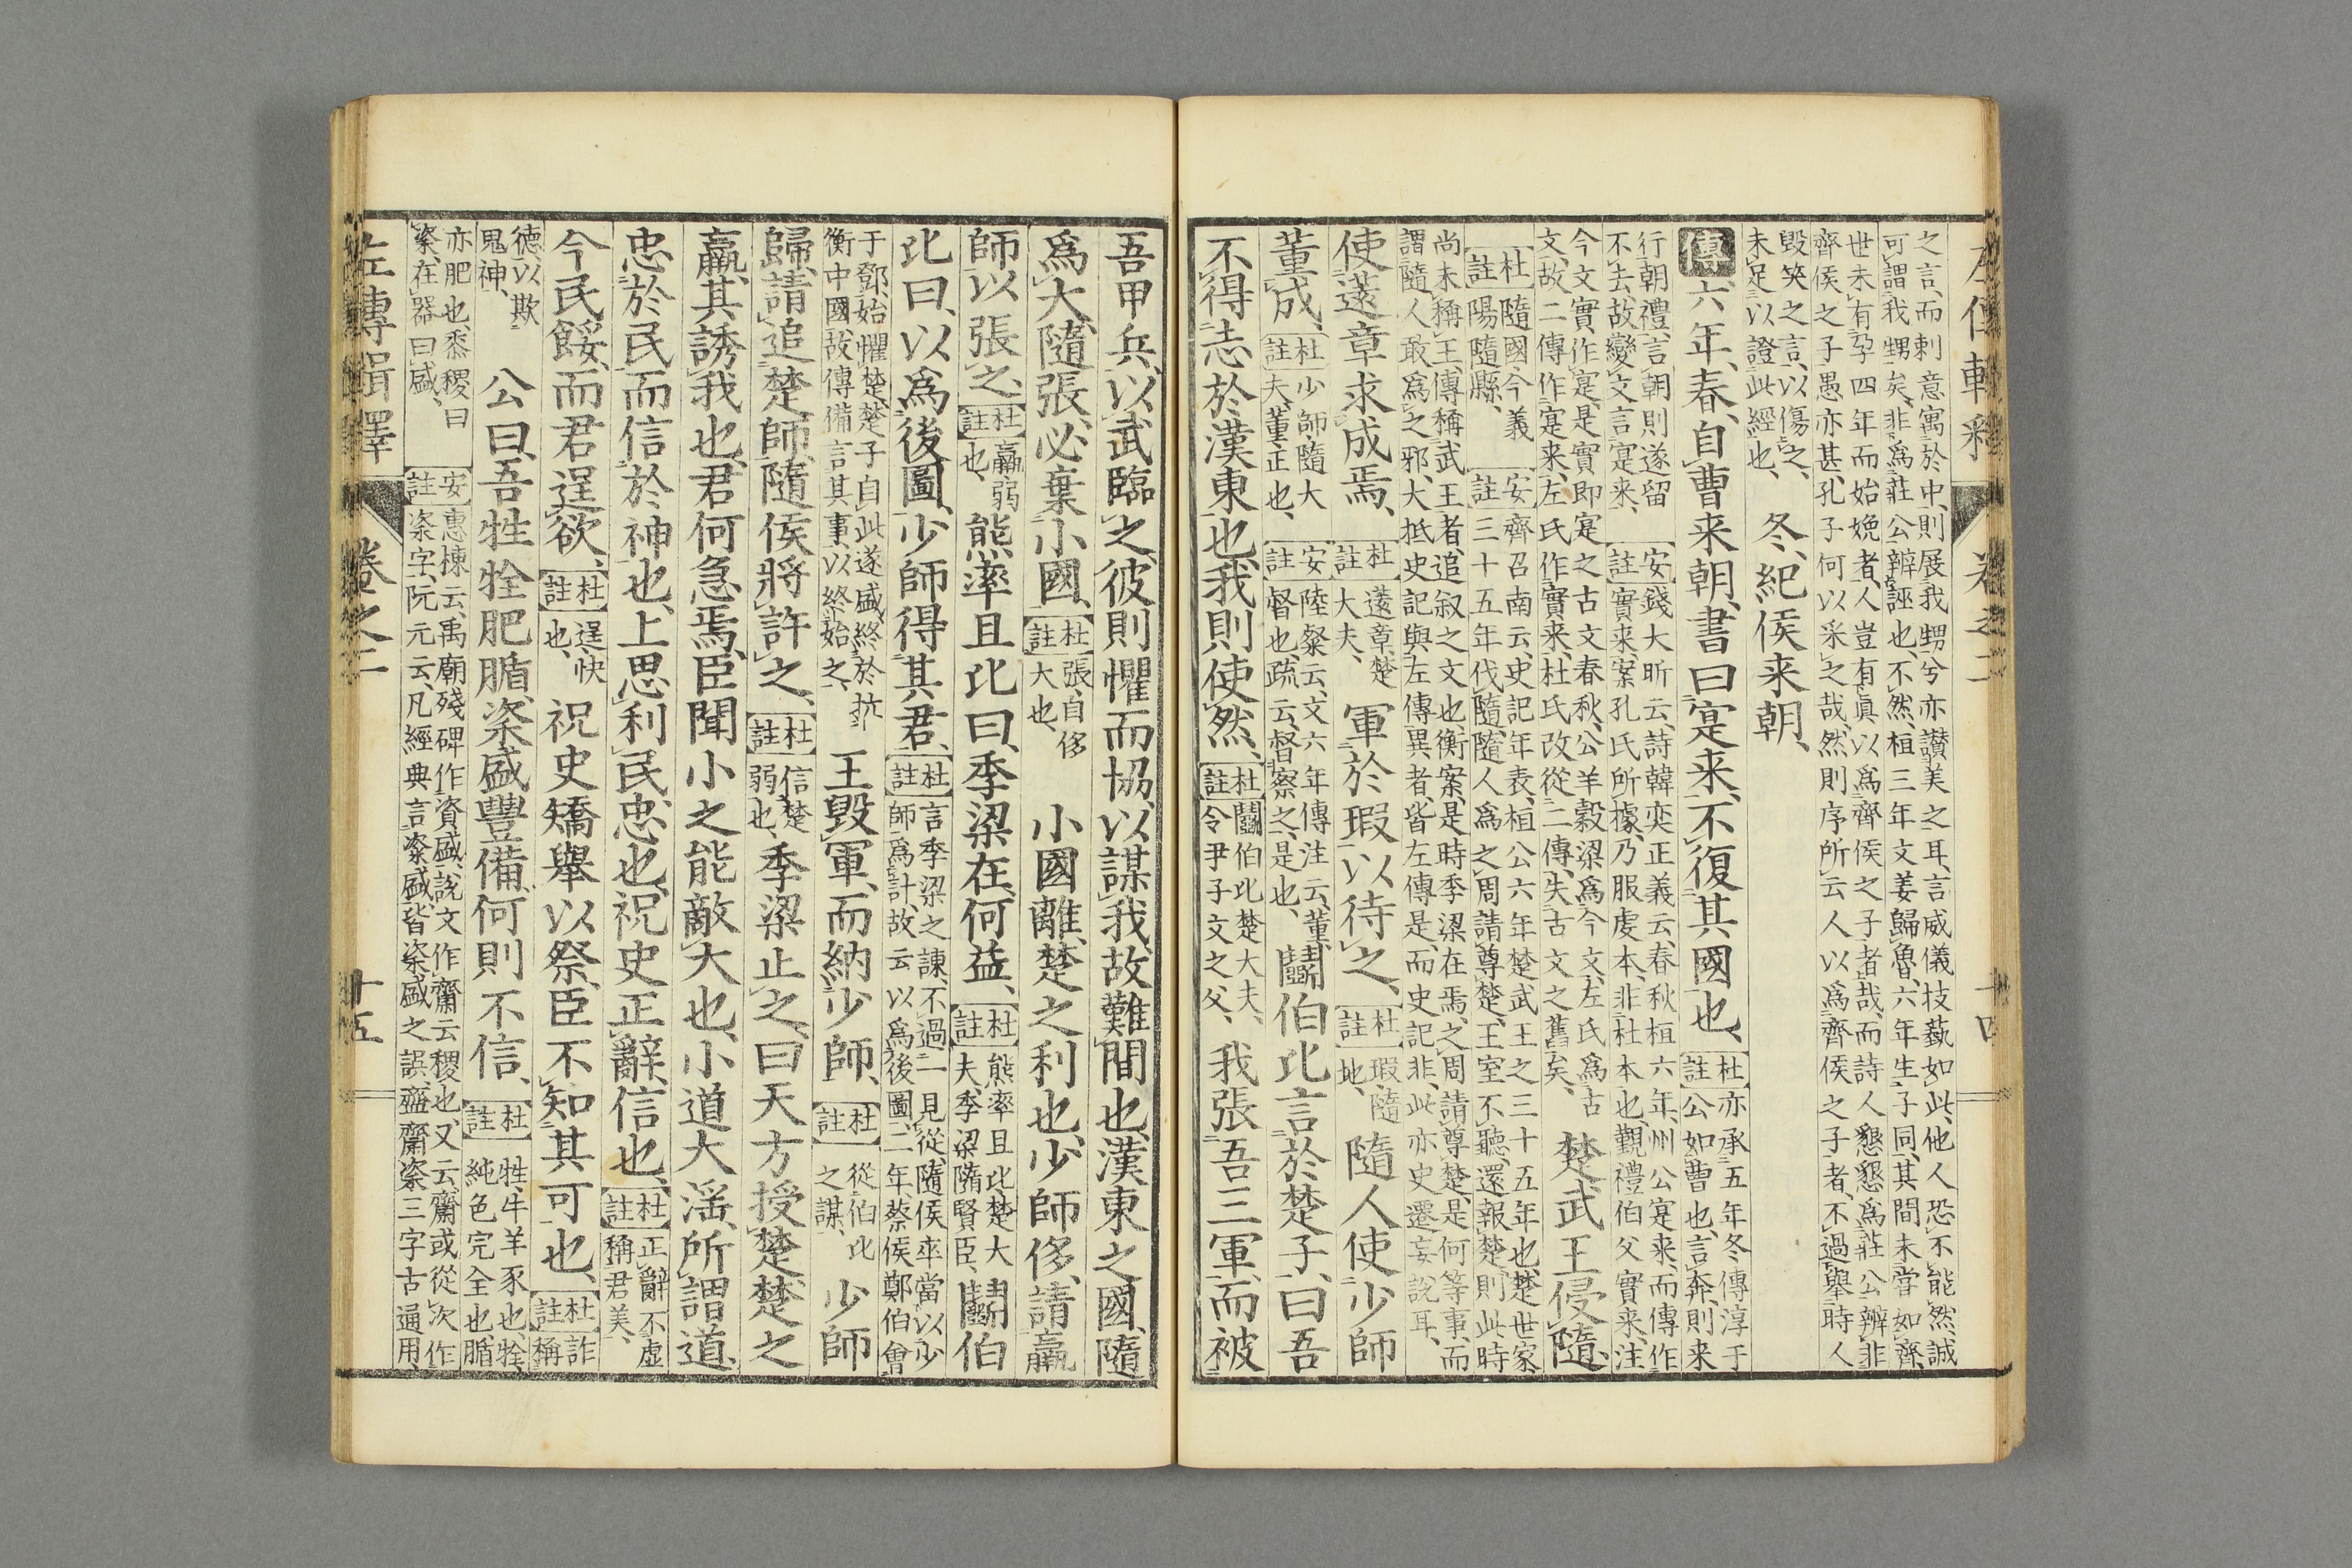 左傳輯釋
卷之二
十四
之言、而刺意寓於中、則展我甥兮、亦讃美之耳、言威儀技藝如此、他人恐不能然、誠
可謂我甥矣、非為莊公辨誣也、不然、桓三年文姜歸魯、六年生子同、其間未嘗如齊、
世未有孕四年而始娩者、人豈有眞以為齊侯之子者哉、而詩人懇懇為莊公辨非
齊侯之子、愚亦甚、孔子何以采之哉、然則序所云人以為齊侯之子者、不過擧時人
毀笑之言、以傷之、
未足以證此經也、
冬、紀侯来朝、
傳六年、春、自曹来朝、書曰寔来、不復其國也、
杜註亦承五年冬傳淳于
公如曹也、言奔、則来
行朝禮、言朝則遂留
不去、故變文言寔来、
安註錢大昕云、詩韓奕正義云、春秋桓六年、州公寔来、而傳作
實来、案孔氏所據、乃服虔本、非杜本也、觀禮伯父實来、注
今文實作寔、是實即寔之古文、春秋、公羊穀梁為今文、左氏為古
文、故二傳作寔来、左氏作實来、杜氏改從二傳、失古文之舊矣、
楚武王侵隨、
杜註隨國、今義
陽隨縣、
安註齊召南云、史記年表、桓公六年、楚武王之三十五年也、楚世家、
三十五年伐隨、隨人為之周請尊楚、王室不聽、還報楚、則此時
尚未稱王、傳稱武王者、追叙之文也、衡案、是時季梁在焉、之周請尊楚、是何等事、而
謂隨人敢為之邪、大抵史記與左傳異者、皆左傳是、而史記非、此亦史遷妄說耳、
使薳章求成焉、
杜註薳章、楚
大夫、
軍於瑕以待之、
杜註瑕、隨
地、
隨人使少師
董成、
杜註少師、隨大
夫、董正也、
安註陸粲云、文六年傳注云、董、
督也、疏云、督察之、是也、
鬪伯比言於楚子、曰吾
不得志於漢東也、我則使然、
杜註鬪伯比楚大夫、
令尹子文之父、
我張吾三軍、而被
吾甲兵、以武臨之、彼則懼而協、以謀我、故難間也、漢東之國、隨
為大、隨張、必棄小國、
杜註張、自侈
大也、
小國離、楚之利也、少師侈、請羸
師以張之、
杜註羸弱
也、
熊率且比曰、季梁在、何益、
杜註熊率且比楚大
夫、季梁隨賢臣、
鬪伯
比曰、以為後圖、少師得其君、
杜註言季梁之諫、不過一見從、隨侯卒當以少
師為計、故云以為後圖、二年、蔡侯鄭伯會
于鄧、始懼楚、楚子自此遂盛、終於抗
衡中國、故傳備言其事、以終始之、
王毀軍、而納少師、
杜註從伯比
之謀、
少師
歸、請追楚師、隨侯將許之、
杜註信楚
弱也、
季梁止之、曰天方授楚、楚之
羸、其誘我也、君何急焉、臣聞小之能敵大也、小道大淫、所謂道、
忠於民、而信於神也、上思利民、忠也、祝史正辭、信也、
杜註正辭不虛
稱君美、
今民餒、而君逞欲、
杜註逞、快
也、
祝史矯舉以祭、臣不知其可也、
杜註詐
稱
德、以欺
鬼神、
公曰、吾牲牷肥腯、粢盛豐備、何則不信、
杜註牲、牛羊豕也、牷、
純色完全也、腯
亦肥也、黍稷曰
粢、在器曰盛、
安註惠棟云、禹廟殘碑作資盛、說文作齍云稷也、又云、齍或從次作
粢字、阮元云、凡經典言粢盛、皆粢盛之誤、齍齋粢三字古通用、
左傳輯釋
卷之二
十五